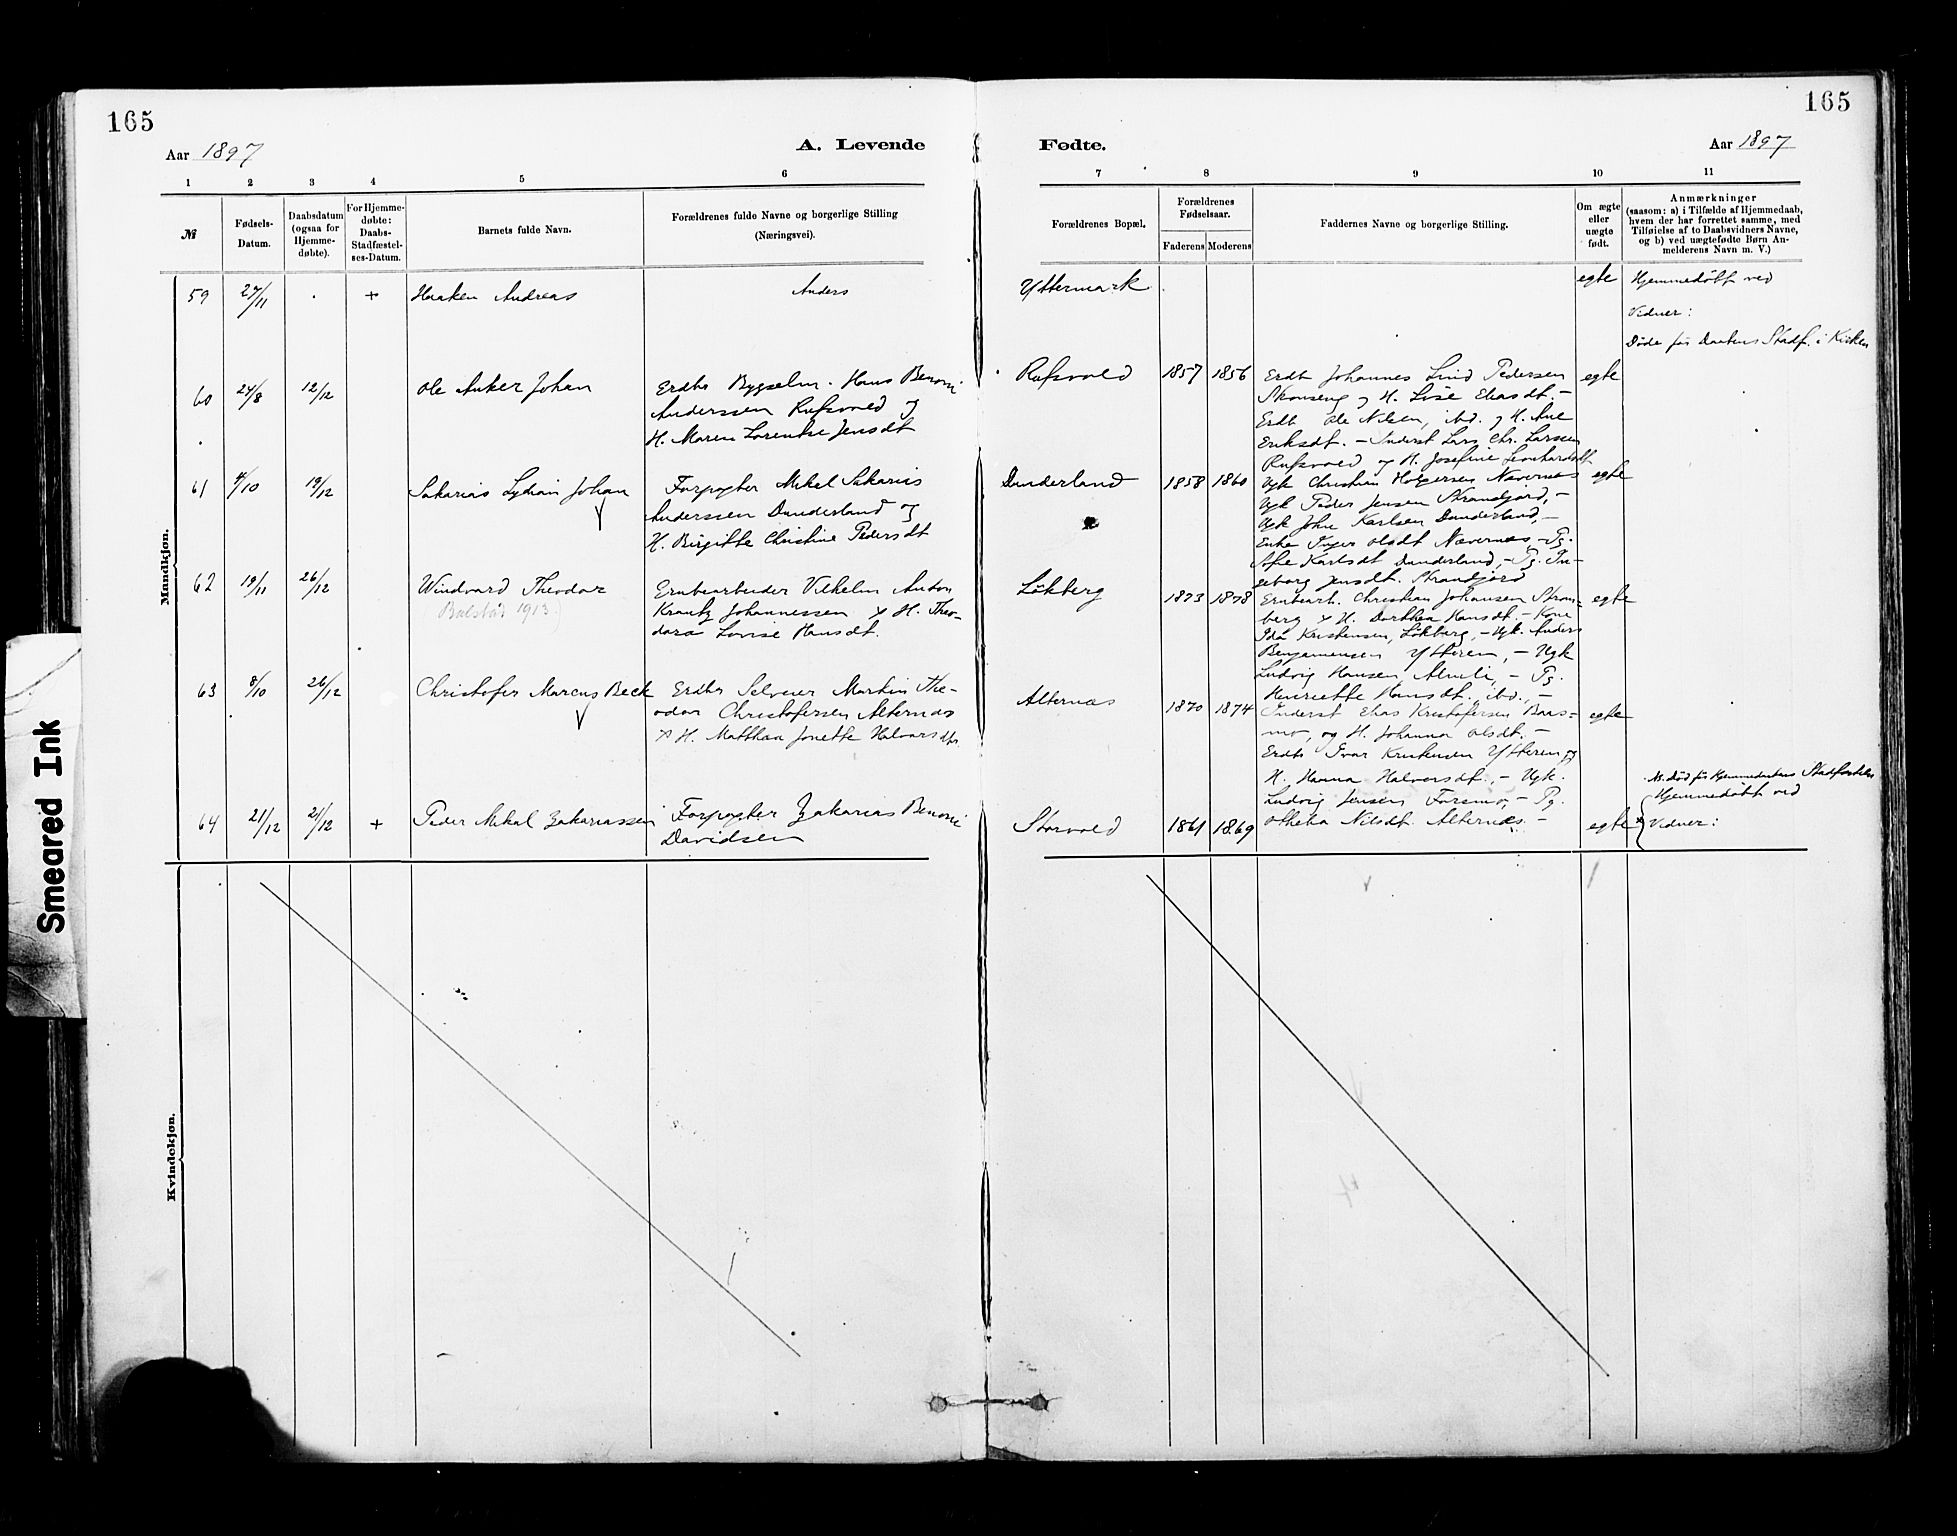 165
165
Aar 1897
A. Levende
Fødte.
Aar 1897
1 2 3 4 5 6 7 8 9 10 11
№
Fødsels-
Datum.
Daabsdatum
(ogsaa for
Hjemme-
døbte).
For Hjemme-
døbte:
Daabs-
Stadfæstel-
ses-Datum.
Barnets fulde Navn.
Forældrenes fulde Navne og borgerlige Stilling
(Næringsvei).
Forældrenes Bopæl.
Forældrenes
Fødselsaar.
Faderens Moderens
Faddernes Navne og borgerlige Stilling.
Om ægte
eller
uægte
født.
Anmærkninger
(saasom: a) i Tilfælde af Hjemmedaab,
hvem der har forrettet samme, med
Tilføielse af to Daabsvidners Navne,
og b) ved uægtefødte Børn An-
melderens Navn m. V.)
Mandkjøn.
59 27/11 + Haaken Andreas
Anders
Yttermark
egte
Hjemmedøbt ved
Vidner:
Døde før Daabens Stadf. i Kirken
60 24/8 12/12 Ole Anker Johan
Erdbr Bygselm. Hans Benoni
Anderssen Rufsvold og
H. Maren Lorentse Jensdt
Rufsvold
1857 1856
Erdb Johannes Lind Pedersen
Skonseng og H. Lise Eliasdt. -
Erdb Ole Nilsen, ibd. og H. Ane
Eriksdt. - Inderst Lars Chr. Larssen
Rufsvold og H. Josefine Leonhardsdt
egte
61 4/10 19/12 Sakarias Lydian Johan
Forpagter Mikal Sakarias
Anderssen Dunderland og
H. Birgitte Christine Pedersdt
Dunderland
1858 1860
Ugk Christian Holgersen Nævernes
Ugk Peder Jensen Strandjord, -
Ugk John Karlsen Dunderland, -
Enke Inger Olsdt Nævernes - Pg.
Sofie Karlsdt Dunderland, - Pg. In-
geborg Jensdt. Strandjord
egte
62 19/11 26/12 Windvard Theodor
(Balstad 1913)
Grubearbeider Vilhelm Anton
Krantz Johannessen & H. Theo-
dora Lovise Hansdt.
Løkberg
1873 1878
Grubearb. Christian Johansen Strøm-
berg & H. Dorthea Hansdt. - Kone
Ida Kristensen, Løkberg, - Ugk. Anders
Benjaminsen Ytteren, - Ugk
Ludvig Hansen, Almli, - Pg.
Henriette Hansdt. ibd. -
egte
63 8/10 26/12 Christofer Marcus Beck
Erdbr Selveier Martin The-
odor Christofersen Alternæs
& H. Matthea Jonette Halvorsdtr.
Alternæs
1870 1874
Inderst Elias Kristofersen Baas-
mo, og H. Johanna Olsdt. -
Erdbr Ivar Kristensen Ytteren og
H. Hanna Halvorsdt. - Ugk.
Ludvig Jensen Forsmo, - Pg.
Othelia Nilsdt. Alternæs. -
egte
64 21/12 21/12 + Peder Mikal Zakariassen
Forpagter Zakarias Benoni
Davidsen
Storvold
1861 1869
egte
Hjemmedøbt ved
Vidner:
Kvindekjøn.
Smeared Ink